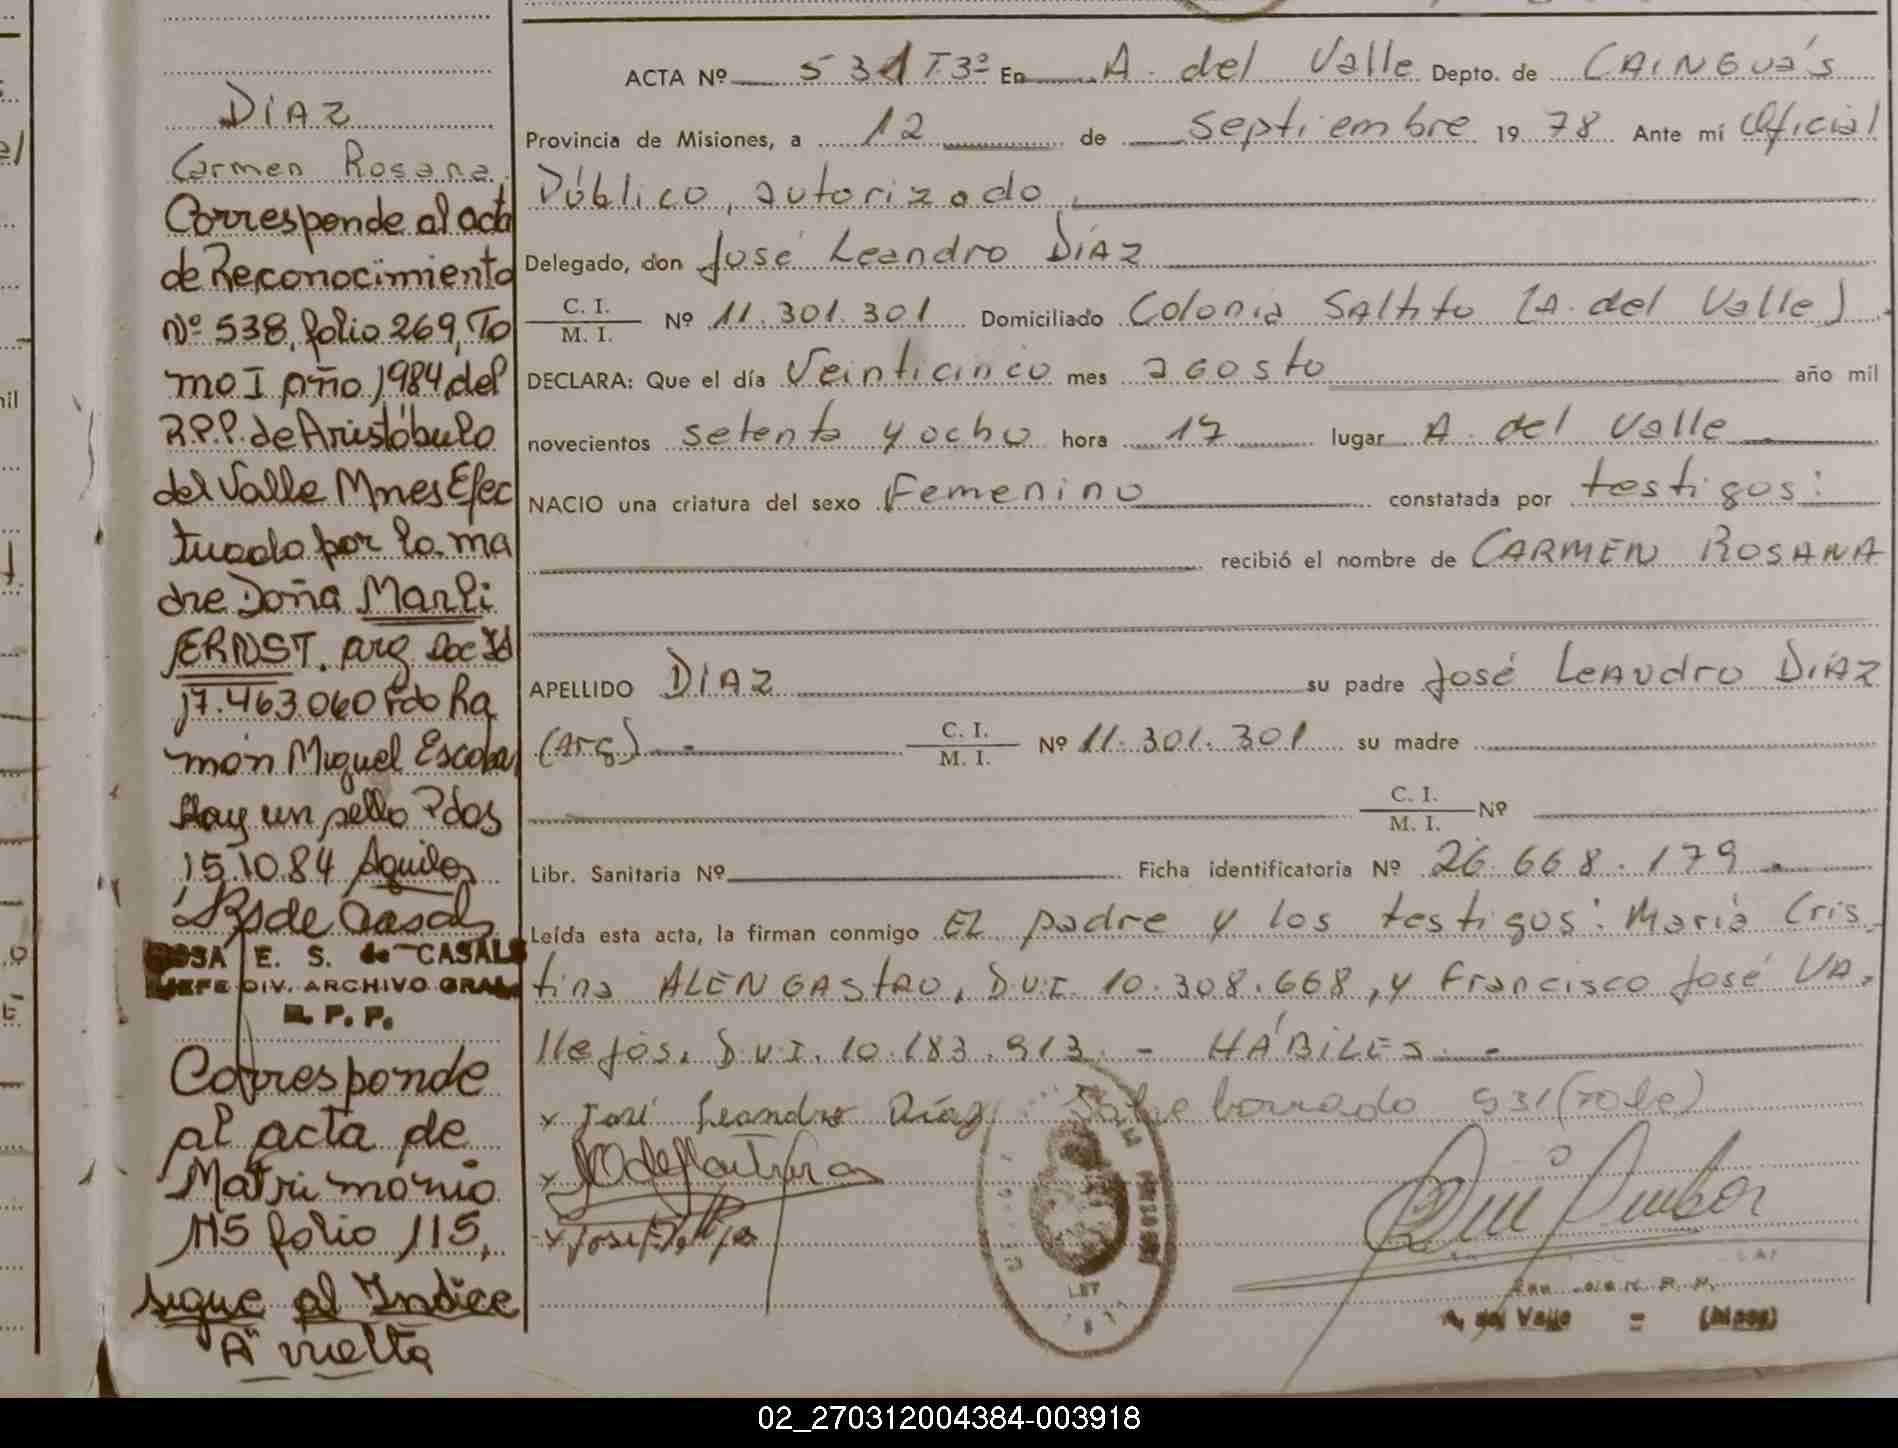 DIAZ
Carmen Rosana
Corresponde al acta
de Reconocimiento
Nº 538, folio 269, To
mo I año 1984, del
R.P.P. de Aristóbulo
del Valle Mnes Efec
tuado por la ma
dre Doña Marli
ERNST. arg Doc Id
17.463.060 Fdo Ra
món Miguel Escobar
Hay un sello Pdas
15.10.84
de Casals
ROSA E. S. de CASALS
JEFE DIV. ARCHIVO GRAL
R. P. P.
Corresponde
al acta de
Matrimonio
115 folio 115,
sigue al Indice
Aª vuelta
ACTA Nº 531 T.3º En A. del Valle Depto. de CAINGUÁS
Provincia de Misiones, a 12 de Septiembre 19 78 Ante mí Oficial
Público, autorizado,
Delegado, don José Leandro DÍAZ
C. I.
M. I. Nº 11.301.301 Domiciliado Colonia SALTITO (A. del Valle)
DECLARA: Que el día Veinticinco mes agosto año mil
novecientos setenta y ocho hora 17 lugar A. del Valle
NACIO una criatura del sexo Femenino constatada por testigos:
recibió el nombre de CARMEN ROSANA
APELLIDO DIAZ su padre José Leandro DíAZ
(Arg) C. I.
M. I. Nº 11.301.301 su madre
C. I.
M. I. Nº
Libr. Sanitaria Nº Ficha identificatoria Nº 26.668.179
Leída esta acta, la firman conmigo EL padre y los testigos: María Cris-
tina ALENGASTRO, D.U.I. 10.308.668, y Francisco José VA-
llejos. D.U.I. 10.183.913. - HÁBILES. -
x José Leandro Díaz. Sobre borrado 531 (vale)
x
x
A. del Valle = (Mnes)
02_270312004384-003918